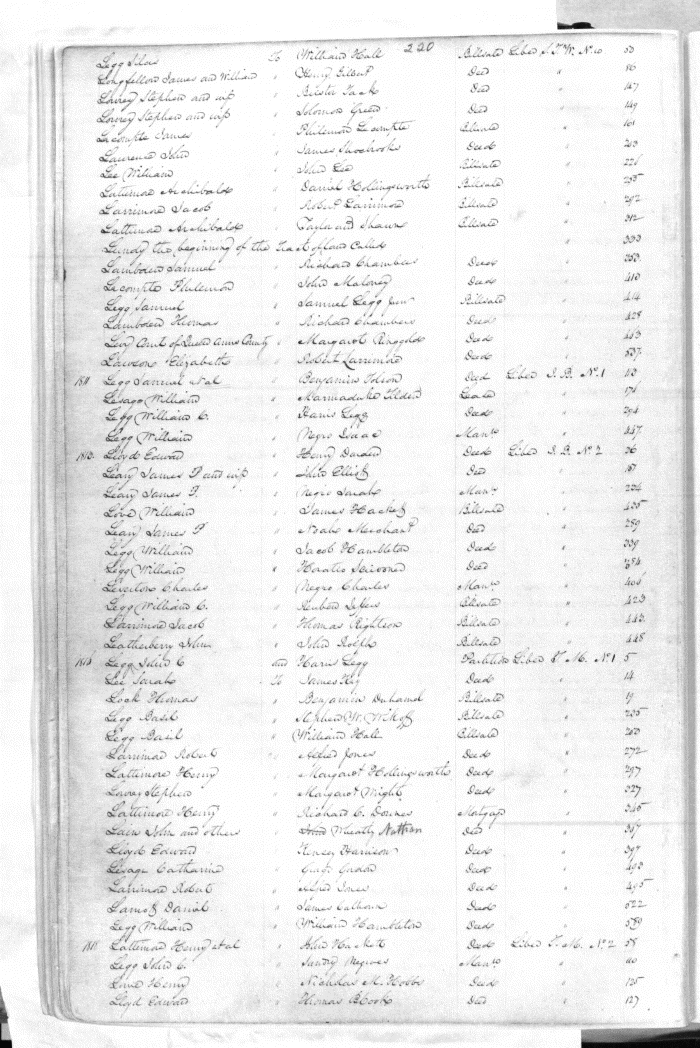 220
Legg Silas To William Hall Billsale Liber J. T. W. No. 10 53
Longfellow James and William " Henry Gilbert Deed " 86
Lowrey Stephen and wife " Deed " 147
Lowrey Stephen and wife " Solomon Green Deed " 149
Lecompte James " Philemon Lecompte Billsale " 161
Lawrence John " James Shoebrooks Deed " 213
Lee William " John Lee Billsale " 221
Lattimore Archibald " Daniel Hollingsworth Billsale " 255
Larrimore Jacob " Robert Larrimore Billsale " 292
Lattimore Archibald " Taylor and Shawn Billsale " 312
Lundy the beginning of the Tract of land Called " 333
Lambden Samuel " Richard Chambers Deed " 353
Lecompte Philemon " John Maloney Deed " 410
Legg Samuel " Samuel Legg Junr Billsale " 414
Lambden Thomas " Richard Chambers Deed " 428
Levy Court of Queen Anns County " Margaret Ringgold Deed " 463
Lawson Elizabeth " Robert Larrimore Deed " 537
1811 Legg Samuel et al " Benjamin Tolson Deed Liber J. B. No. 1 113
Lesage William " Marmaduke Tilden Lease " 171
Legg William C. " Harris Legg Deed " 294
Legg William " Negro Isaac Manu. " 347
1812 Lloyd Edward " Henry Darden Deed Liber J. B. No. 2 36
Leary James P and wife " John Elliott Deed " 161
Leary James P. " Negro Sarah Manu. " 224
Love William " James Hackett Billsale " 235
Leary James P " Noah Merchant Deed " 259
Legg William " Jacob Hambleton Deed " 339
Legg William " Horatio Deed " 384
Leverton Charles " Negro Charles Manu. " 401
Legg William C. " Reuben Jeffers Billsale " 423
Larrimore Jacob " Thomas Righton Billsale " 443
Leatherbery John " John Rolph Billsale " 448
1813 Legg John C and Harris Legg Partition Liber T. M. No 1 5
Lee Sarah To James Key Deed " 14
Lock Thomas " Benjamin Duhamel Billsale " 19
Legg Basil " Stephen W. Billsale " 235
Legg Basil " William Hall Billsale " 250
Larrimore Robert " Alfred Jones Deed " 272
Lattimore Henry " Margaret Hollingsworth Deed " 297
Lowrey Stephen " Margaret Wright Deed " 327
Lattimore Henry " Richard C. Downes Mortgage " 345
Lain John and others " Wheatly Nathan Deed " 317
Lloyd Edward " Kensey Harrison Deed " 397
Lesage Catharine " George Gordon Deed " 493
Larrimore Robert " Alfred Jones Deed " 495
Daniel " James Calhoun Deed " 522
Legg William " William Hambleton Deed " 580
Lattimore Henry et al " John Hackett Deed Liber T. M. No. 2 58
Legg John C. " Sundry Negroes Manu. " 110
Lane Henry " Nicholas M. Hobbs Deed " 125
Lloyd Edward " Thomas B Cook Deed " 127